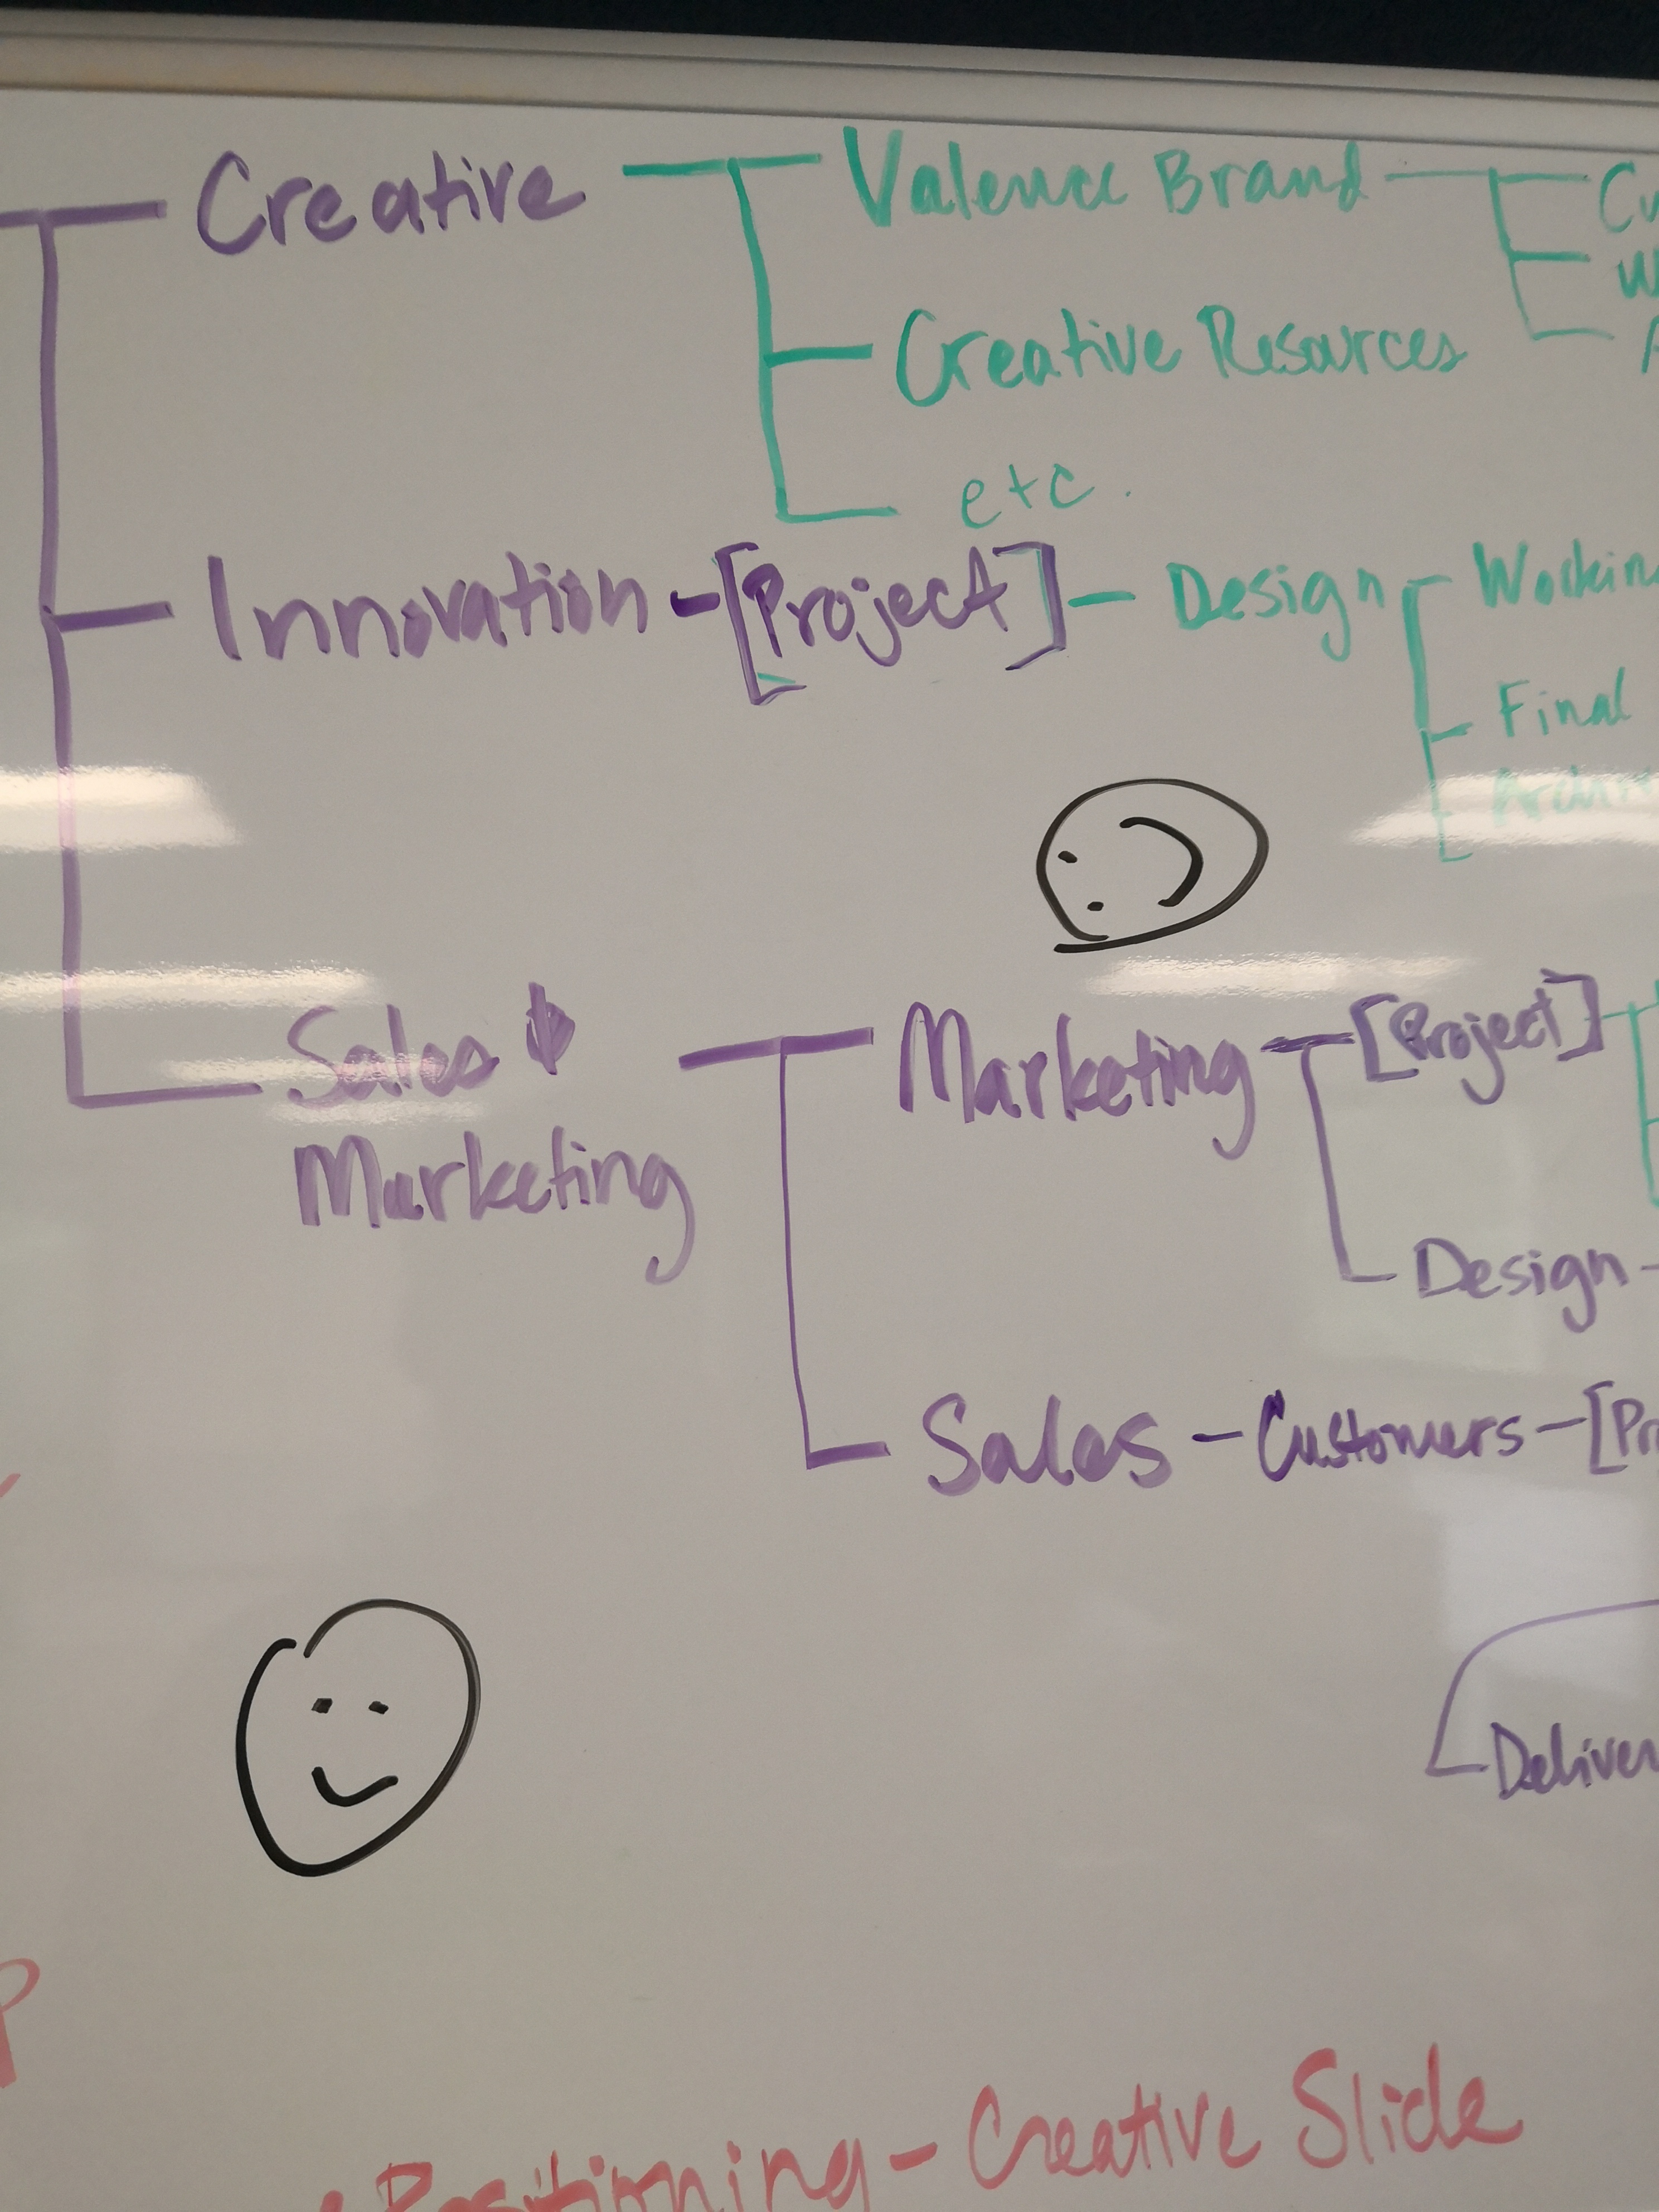 Creative
Valence Brand
Creative Resources
etc.
Innovation - [Project] - Design
Final
Sales &
Marketing
Marketing - [Project]
Design -
Sales - Customers -
Positioning - Creative Slide